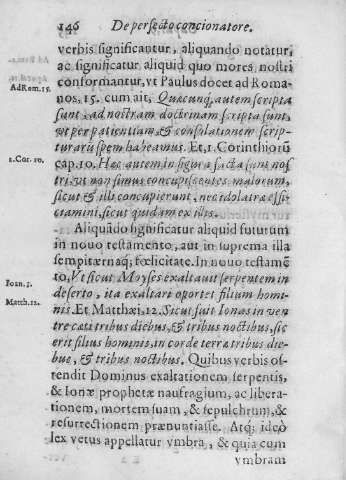 146 De perfecto concionatore.
verbis significantur, aliquando notatur,
ac significatur aliquid quo mores nostri
conformantur, vt Paulus docet ad Roma-
Ad Rom. 15.
nos. 15. cum ait, Quæcunq; autem scripta
sunt, ad nostram doctrinam scripta sunt,
vt per patientiam, & consolationem scrip-
turarũ spem habeamus. Et, 1. Corinthiorũ
1. Cor. 10.
cap. 10. Hæc autem in figura facta sunt nos
tri, vt non simus concupiscentes malorum,
sicut & illi concupierunt, nec idolatræ effi-
ciamini, sicut quidam ex illis.
Aliquãdo significatur aliquid futurum
in nouo testamento, aut in suprema illa
sempiternaq; fœlicitate. In nouo testamẽ
Ioan. 3.
to, Vt sicut Moyses exaltauit serpentem in
deserto, ita exaltari oportet filium homi-
Matth. 12.
nis. Et Matthæi, 12. Sicut fuit Ionas in ven
tre cæti tribus diebus, & tribus noctibus, sic
erit filius hominis, in corde terræ tribus die-
bus, & tribus noctibus. Quibus verbis os-
tendit Dominus exaltationem serpentis,
& Ionæ prophetæ naufragium, ac libera-
tionem, mortem suam, & sepulchrum, &
resurrectionem prænuntiasse. Atq; ideò
lex vetus appellatur vmbra, & quia cum
vmbram